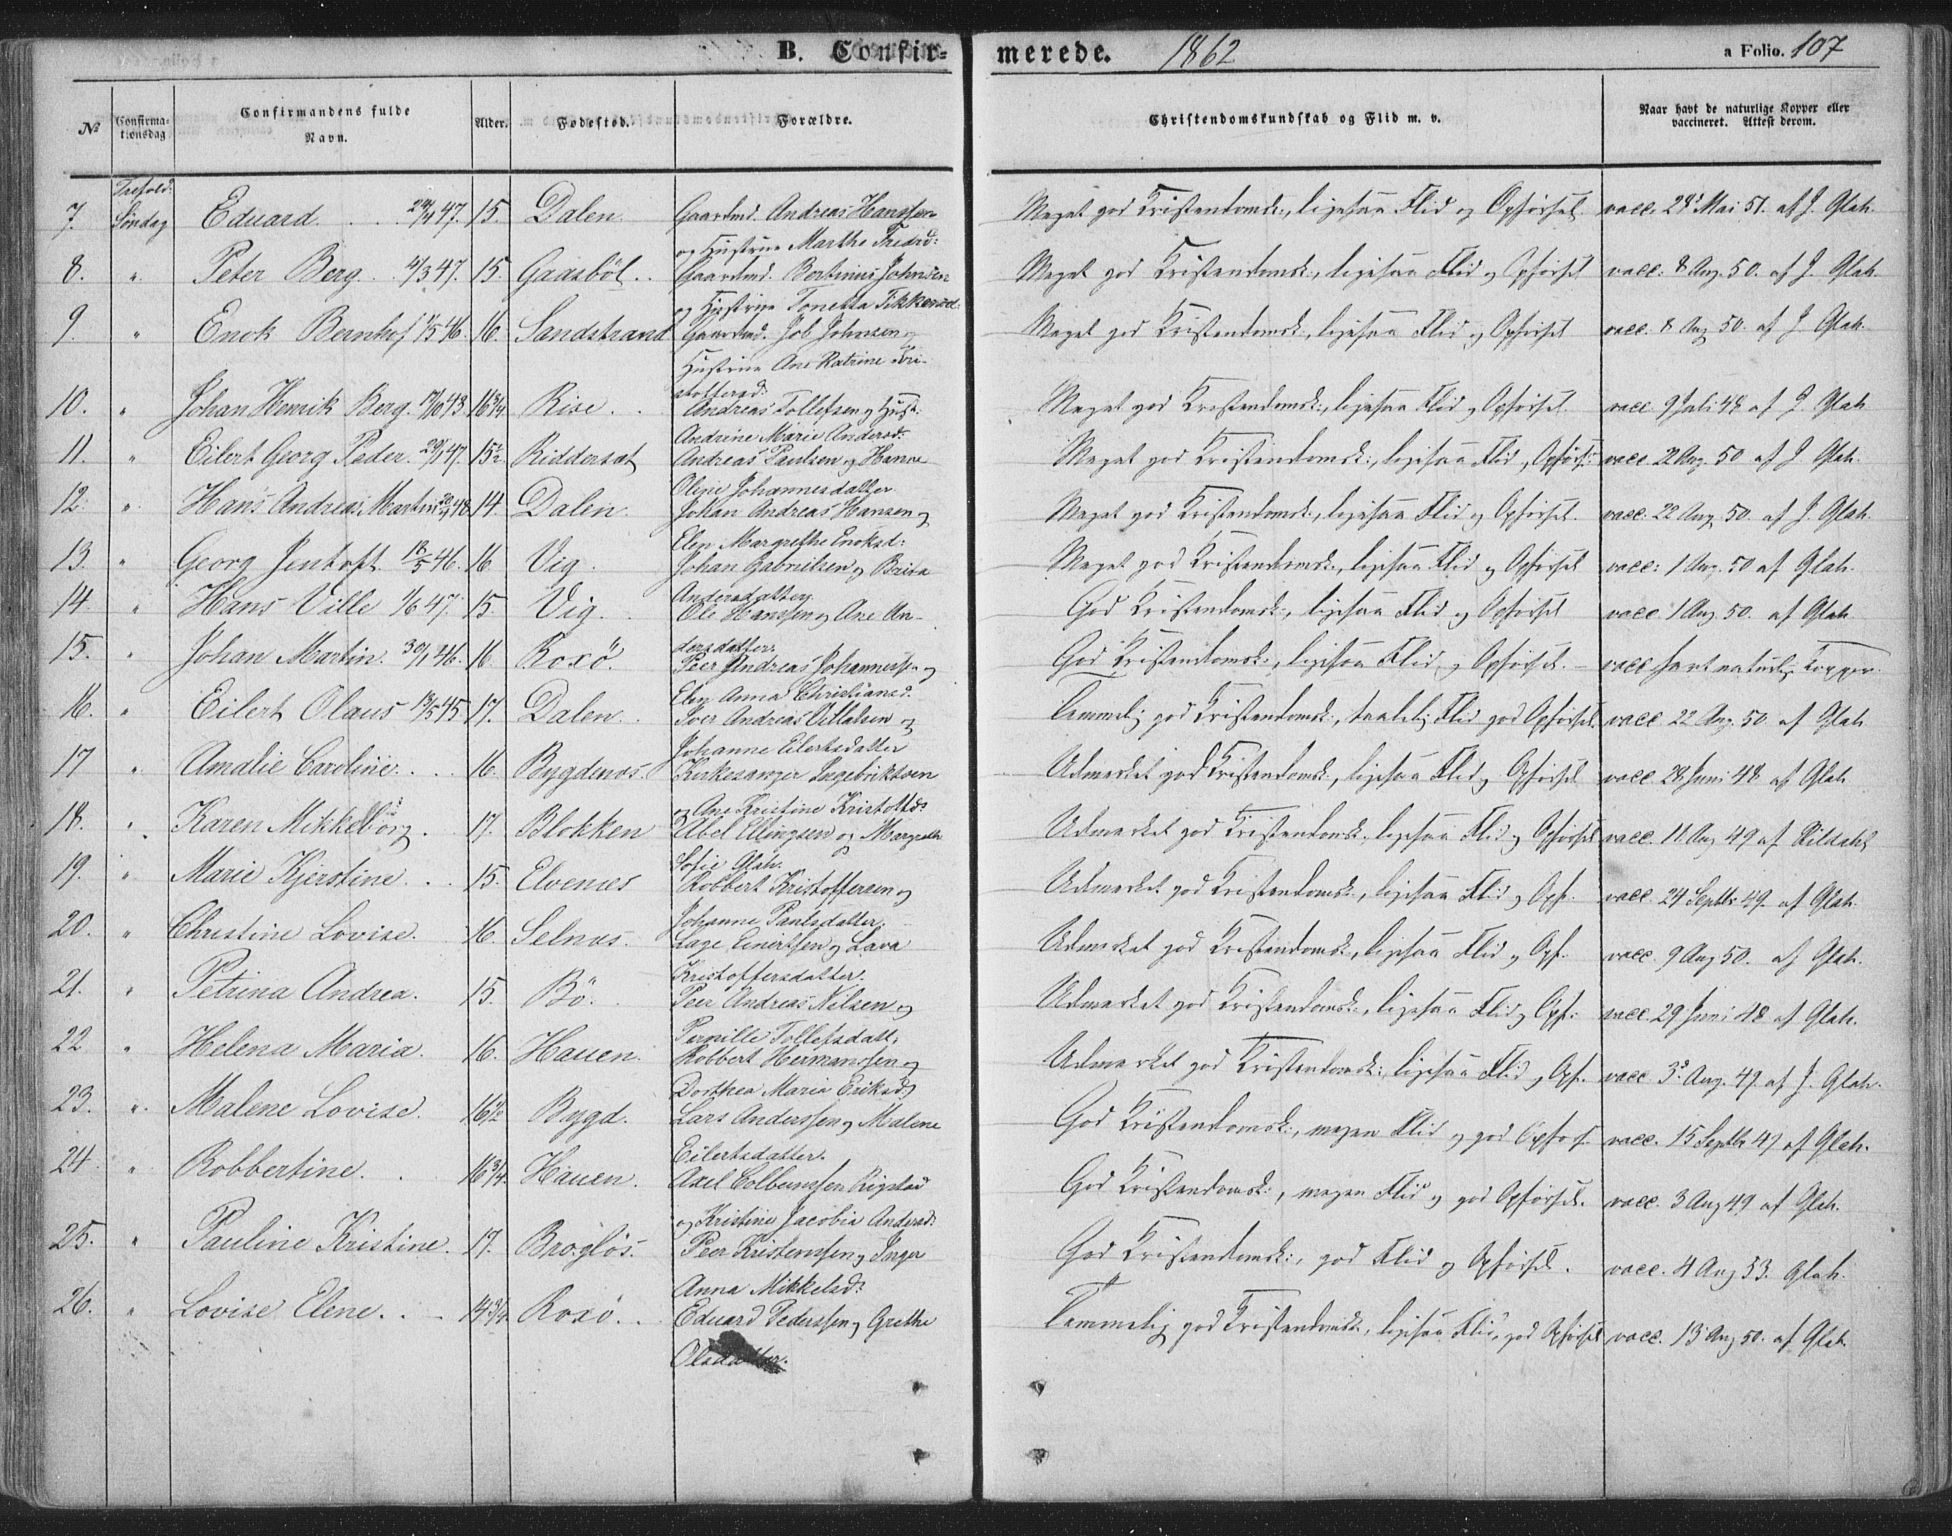 B. Confir-
merede. 1862
a Folio. 107
No
Confirma-
tionsdag
Confirmandens fulde
Navn.
Alder.
Fødested.
Forældre.
Christendomskundskab og Flid m. v.
Naar havt de naturlige Kopper eller
vaccineret. Attest derom.
Trefold:
7. Søndag Eduard. 47. 15. Dalen Gaardmd. Andreas Hanssen Meget god Kristendomsk:, ligesaa Flid og Opførsel. vacc. 28d Mai 51. af J. Glah.
og Hustrue Marthe Fredrd:
8. " Peter Berg. 4/3 47. 15. Gaasböl.. Gaardmd. Bertinus Johnsen Meget god Kristendomsk:, ligesaa Flid og Opførsel vacc: 8 Aug. 50. af J. Glah.
og Hustrue Tonetta
9. " Enok Bernhof 46. 16. Sandstrand Gaardmd. Job Johnsen og Meget god Kristendomsk:, ligesaa Flid og Opførsel vacc. 8 Aug 50. af J. Glah.
Hustrue Ane Katrine Kri-
stoffersd:
10. " Johan Henrik Berg. 16 3/4 Rise. Andreas Tollefsen og Hust: Meget god Kristendomsk:, ligesaa Flid og Opførsel vacc. 9 Juli 48 af J. Glah
Andrine Marie Andersd:
11. " Eilert Georg Peder. 20/1 47. 15½ Riddersæt Andreas Paulsen og Hanne Meget god Kristendomsk:, ligesaa Flid, Opførs: vacc. 22 Aug. 50 af J Glah.
Oline Johannesdatter
12. " Hans Andreas Martin 48 14. Dalen. Johan Andreas Hansen og Meget god Kristendomsk:, ligesaa Flid og Opførsel. vacc. 22 Aug. 50. af J. Glah.
Elen Margrethe Enoksd:
13. " Georg Jentoft 18/5 46. 16 Vig. Johan Gabrielsen og Brita Meget god Kristendomsk:, ligesaa Flid og Opførsel vacc: 1 Aug. 50 af Glah.
Andersdatter
14 " Hans Ville 1/6 47. 15. Vig. Ole Hanssen og Ane An- God Kristendomsk:, ligesaa Flid og Opførsel vacc. 1 Aug 50. af Glah.
dersdatter.
15. " Johan Martin. 30/1 46. 16 Roxö. Peer Andreas Johanness: og God Kristendomsk:, ligesaa Flid og Opførsel. vacc havt naturlig Kopper.
Elen Anna Christiansd.
16. " Eilert Olaus 45 17. Dalen. Iver Andreas og Temmelig god Kristendomsk:, taalelig Flid god Opførsel. vacc. 22 Aug. 50. af Glah
Johanne Eilertsdatter
17 " Amalie Caroline. 16. Bygdenes. Kirkesanger Ingebriktsen Udmærket god Kristendomsk:, ligesaa Flid og Opførsel vacc. 28 Juni 48 af Glah.
og Ane Kristine Kristoffd:
18. " Karen Mikkelborg. 17. Blokken Abel Ellingsen og Margrethe Udmærket god Kristendomsk:, ligesaa Flid og Opførsel vacc. 11 Aug 49 af Kildahl
Sofie Glah.
19. " Marie Kjerstine. 15. Elvenes Robbert Kristoffersen og Udmærket god Kristendomsk:, ligesaa Flid og Opf. vacc. 24 Septbr 49. af Glah.
Johanne Paulsdatter.
20. " Christine Lovise. 16. Selnæs. Lage Einertsen og Lava Udmærket god Kristendomsk:, ligesaa Flid og Opf. vacc. 9 Aug 50. af Glah.
Kristoffersdatter.
21. " Petrina Andrea. 15. Bö. Peer Andreas Nilsen og Udmærket god Kristendomsk:, ligesaa Flid og Opf: vacc. 29 Juni 48 af Glah.
Pernille Tollefsdatt.
22 " Helena Maria. 16. Hauen. Robbert Hermanssen og Udmærket god Kristendomsk:, ligesaa Flid og Opf. vacc 3d Aug. 49. af J. Glah.
Dorthea Maria Eriksd:
23. " Malene Lovise. 16½ Bygd. Lars Anderssen og Malene God Kristendomsk:, megen Flid og god Opførs. vacc. 15 Septbr 49 af Glah.
Eilertsdatter.
24 " Robbertine. 16 3/4. Hauen. Axel Colbunssen Rigstad God Kristendomsk:, megen Flid og god Opførsel. vacc. 3 Aug 49 af Glah.
og Kristine Jacobia Andersd:
25. " Pauline Kristine. 17. Brogløs. Peer Kristenssen og Inger God Kristendomsk:, god Flid og Opførsel. vacc. 4 Aug 53. Glah.
Anna Mikkelsd:
26. " Lovise Elene. 14 3/4. Roxö. Eduard Pederssen og Grethe Temmelig god Kristendomsk:, ligesaa Flid, god Opførsel vacc. 13 Aug 50. af Glah.
Olsdatter.